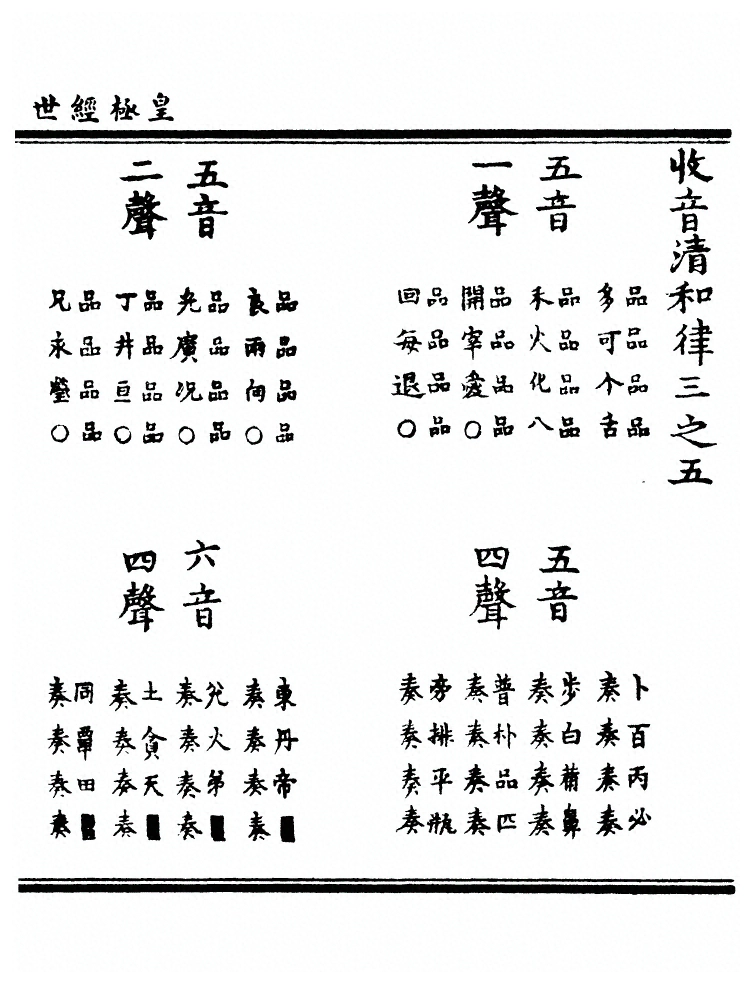 皇極經世
收音清和律三之五
五音
一聲
品品品品
多可个舌
品品品品
禾火化八
品品品品
開宰愛〇
品品品品
回每退〇
五音
四聲
卜百丙必
奏奏奏奏
步白葡鼻
奏奏奏奏
普朴品匹
奏奏奏奏
旁排平瓶
奏奏奏奏
五音
二聲
品品品品
良兩向〇
品品品品
光廣况〇
品品品品
丁井亘〇
品品品品
兄永瑩〇
六音
四聲
東丹帝■
奏奏奏奏
兌火第■
奏奏奏奏
土貪天■
奏奏奏奏
同覃田■
奏奏奏奏